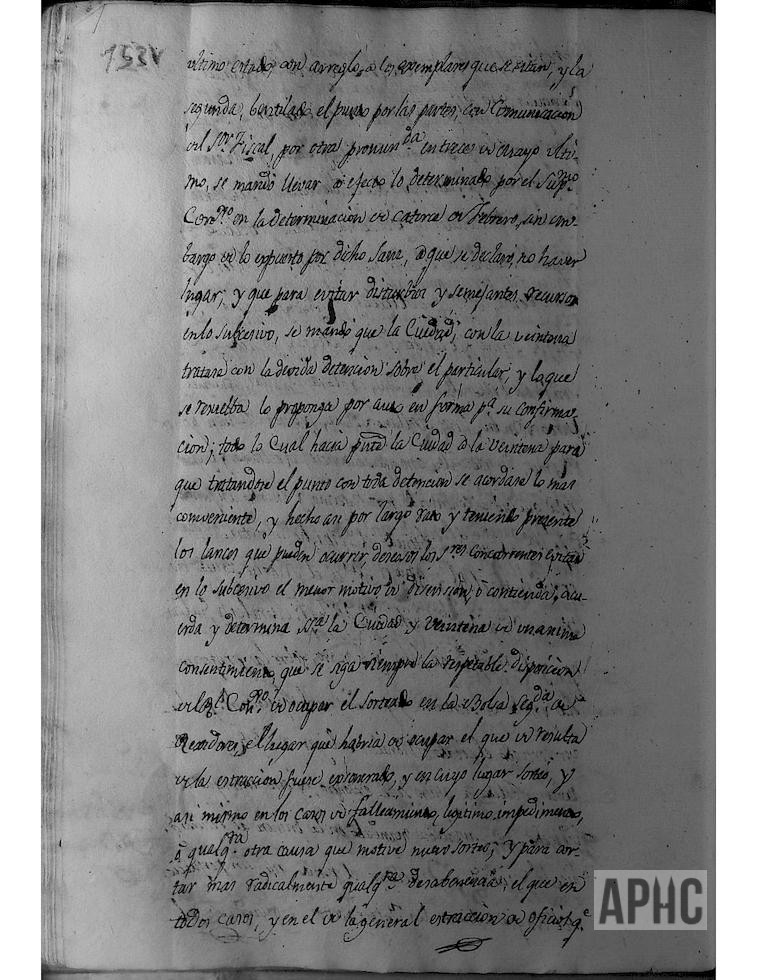 153V
ultimo estado, con arreglo a los exemplares que se citan, y la
segunda, bentilado el punto por las partes, con Comunicacion
del Sor. Fiscal, por otra pronunda. en trece de Mayo ulti-
mo, se mandò llevar a efecto lo determinado por el Supmo.
Consejo en la determinacion de catorce de Febrero, sin em-
bargo de lo expuesto por dicho Sanz, a que se declarò, no haver
lugar; y que para evitar disturbios y semejantes recursos
en lo subcesivo, se mandò que la Ciudad, con la veintena
tratare con la devida detencion sobre el particular, y lo que
se resuelba lo proponga por auto en forma pa. su confirma-
cion; todo lo Cual hacia pnte la Ciudad a la Veintena para
que tratandose el punto con toda detencion se acordase lo mas
conveniente, y hecho asi por largo rato y teniendo presente
los lances que pueden ocurrir, deseosos los Sres. concurrentes evitar
en lo subcesivo el menor motivo de disension, ò contienda, acu-
erda y determina la Ciudad y Veintena de unanime
consentimiento, que se siga siempre la respetable disposicion
del Consejo de ocupar el sorteado en la Bolsa Segda. de
Regidores, el lugar que habria de ocupar el que de resulta
de la extraccion fuese exonerado, y en cuyo lugar sorteò, y
asi mismo en los casos de fallecimiento, legitimo impedimento,
ò qualqra. otra causa que motive nuevo sorteo; y para cor-
tar mas radicalmente qualqra. desabenencia, el que en
todos casos, y en el de la general extraccion de oficios qe.
APHC